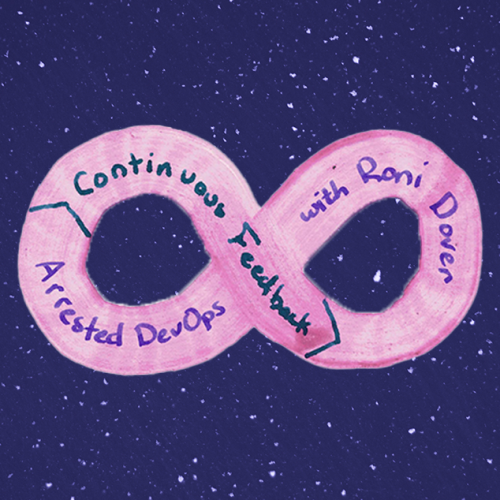 Continuous Feedback
with Roni Dover
Arrested DevOps